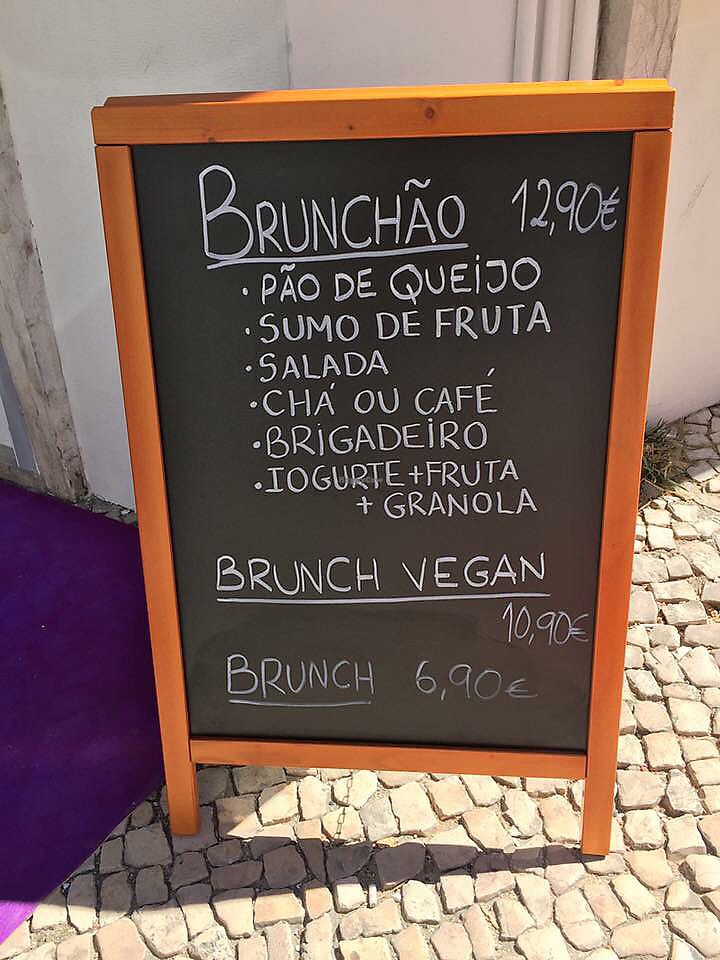 BRUNCHÃO 12,90€
· PÃO DE QUEIJO
· SUMO DE FRUTA
· SALADA
· CHÁ OU CAFÉ
· BRIGADEIRO
· IOGURTE + FRUTA
+ GRANOLA
BRUNCH VEGAN
10,90€
BRUNCH 6,90€